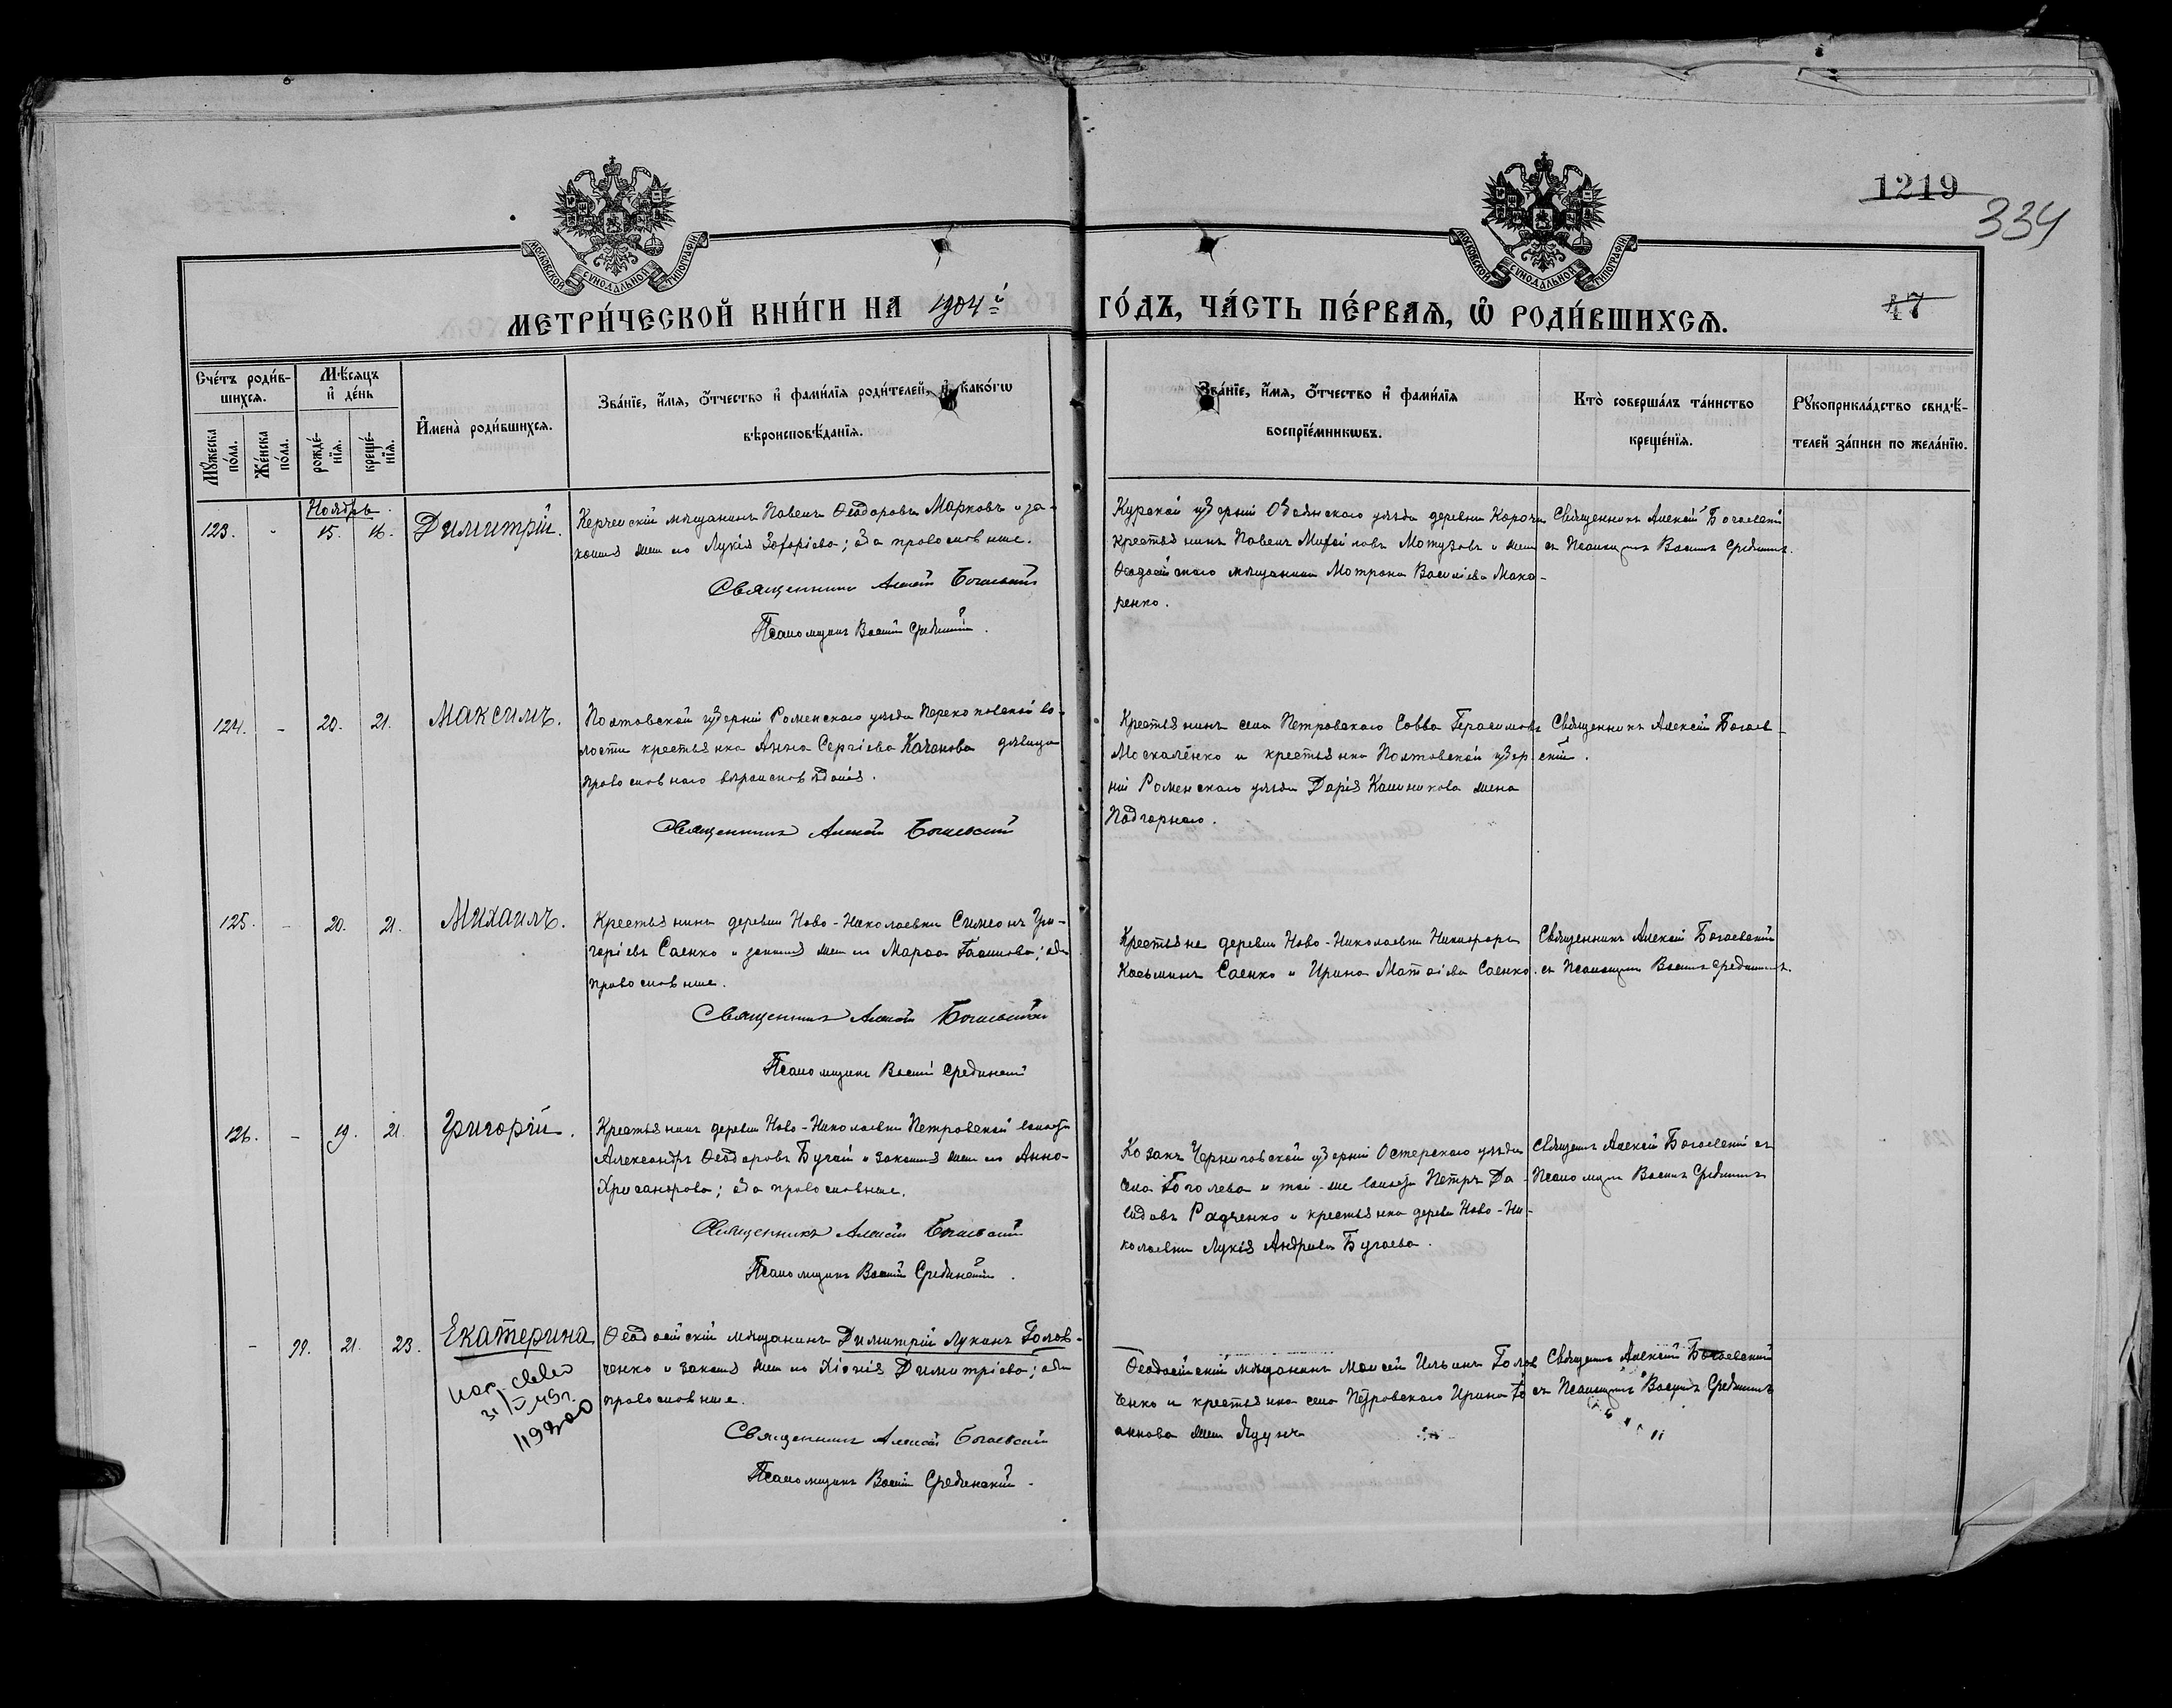 МОСКОВСКОЙ СѴНОДАЛЬНОЙ ТИПОГРАФІИ
МОСКОВСКОЙ СѴНОДАЛЬНОЙ ТИПОГРАФІИ
1219
334
МЕТРИ́ЧЕСКОЙ КНИ́ГИ НА 1904й ГО́ДЪ, ЧА́СТЬ ПЕ́РВАѦ, Ѽ РОДИ́ВШИХСѦ.
47
Сче́тъ роди́в-
шихсѧ.
Мѣ́сѧцъ
и҆ де́нь
Мꙋ́жеска
по́ла.
Же́нска
по́ла.
рожде́-
нїѧ.
креще́-
нїѧ.
И҆мена̀ роди́вшихсѧ.
Зва́нїе, и҆́мѧ, ѻ҆́тчество и҆ фами́лїѧ роди́телей, и҆ како́гѡ
вѣроисповѣ́данїѧ.
Зва́нїе, и҆́мѧ, ѻ҆́тчество и҆ фами́лїѧ
воспрїе́мникѡвъ.
Кто̀ соверша́лъ та́инство
креще́нїѧ.
Рꙋкоприкла́дство свидѣ́-
телей за́писи по жела́нїю.
Ноябрь
123. - 15. 16. Димитрій.
Керченскій мѣщанинъ Павелъ Ѳеодоровъ Марковъ и за-
конная жена его Лукія ; оба православные.
Священникъ Алексій Богаевскій
Псаломщикъ Василій Срединскій.
Курской губерніи Обоянскаго уѣзда деревни
крестьянинъ Павелъ Михаиловъ и жена
Ѳеодосійскаго мѣщанина Матрона Василіева Мака-
ренко.
Священникъ Алексій Богаевскій
съ Псаломщ. Васил. Срединск.
124. - 20. 21. Максимъ.
Полтавской губерніи Роменскаго уѣзда Перекоповской во-
лости крестьянка Анна Сергіева Качанова дѣвица
православнаго вѣроисповѣданія.
Священникъ Алексій Богаевскій
Крестьянинъ села Петровскаго Савва Герасимовъ
Москаленко и крестьянка Полтавской губер-
ніи Роменскаго уѣзда Дарія Калиникова жена
Подгорнаго.
Священникъ Алексій Богаев-
скій.
125. - 20. 21. Михаилъ.
Крестьянинъ деревни Ново-Николаевки Симеонъ Гри-
горіевъ Саенко и законная жена его Марѳа ; оба
православные.
Священникъ Алексій Богаевскій
Псаломщикъ Василій Срединскій
Крестьяне деревни Ново-Николаевки Никифоръ
Касьминъ Саенко и Ирина Матѳіева Саенко.
Священникъ Алексій Богаевскій
съ Псаломщ. Васил. Срединск.
126. - 19. 21. Григорій.
Крестьянинъ деревни Ново-Николаевки Петровской волости
Александръ Ѳеодоровъ Бугай и законная жена его Анна
Хрисанфова; оба православные.
Священникъ Алексій Богаевскій
Псаломщикъ Василій Срединскій.
Козакъ Черниговской губерніи Остерскаго уѣзда
села Гоголева и той-же волости Петръ Да-
видовъ Радченко и крестьянка деревни Ново-Ни-
колаевки Лукія Андреева Бугаева.
Священ. Алексій Богаевскій съ
Псаломщ. Васил. Срединск.
- 99. 21. 23. Екатерина
Ѳеодосійскій мѣщанинъ Димитрій Лукинъ Голов-
ченко и законная жена его Хіонія Димитріева; оба
православные.
Священникъ Алексій Богаевскій
Псаломщикъ Василій Срединскій.
Ѳеодосійскій мѣщанинъ Моисей Ильинъ Голов
ченко и крестьянка села Петровскаго Ирина
жена
Священ. Алексій Богаевскій
съ Псаломщ. Васил. Срединск.
119300